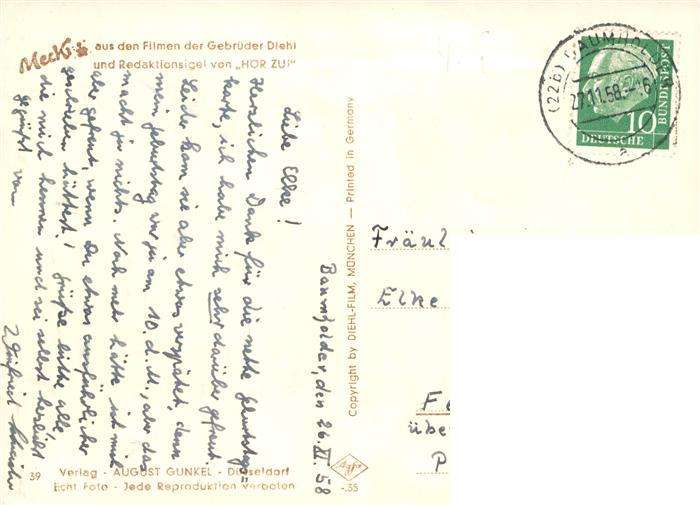 Mecki aus den Filmen der Gebrüder Diehl
und Redaktionsigel von „HÖR ZU!"
Liebe Elke!
Herzlichen Dank für die nette Geburtstags=
karte, ich habe mich sehr darüber gefreut.
Leider kam sie aber etwas verspätet, denn
mein Geburtstag war ja am 10. d.M., aber das
macht ja nichts. Noch mehr hätte ich mich
aber gefreut, wenn Du etwas ausführlicher
geschrieben hättest! Grüße bitte alle,
die mich kennen und sei selbst herzlichst
gegrüßt von
Winfried
Baumholder, den 26.XI.58
Copyright by DIEHL-FILM, MÜNCHEN — Printed in Germany
(22b) BAUMHOLDER
27.11.58.-16
a
10
DEUTSCHE
BUNDESPOST
Fräul
Elke
Fe
übe
P
39
Verlag - AUGUST GUNKEL - Düsseldorf
Echt Foto - Jede Reproduktion verboten
Agfa
-.35